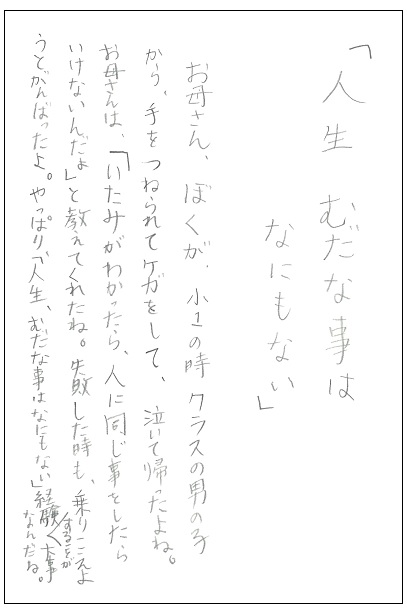 「人生 むだな事は
なにもない」
お母さん、ぼくが、小1の時 クラスの男の子
から、手をつねられてケガをして、泣いて帰ったよね。
お母さんは、「いたみがわかったら、人に同じ事をしたら
いけないんだよ」と教えてくれたね。失敗した時も、乗りこえよ
うとがんばったよ。やっぱり「人生、むだな事はなにもない」経験することが大事
なんだね。